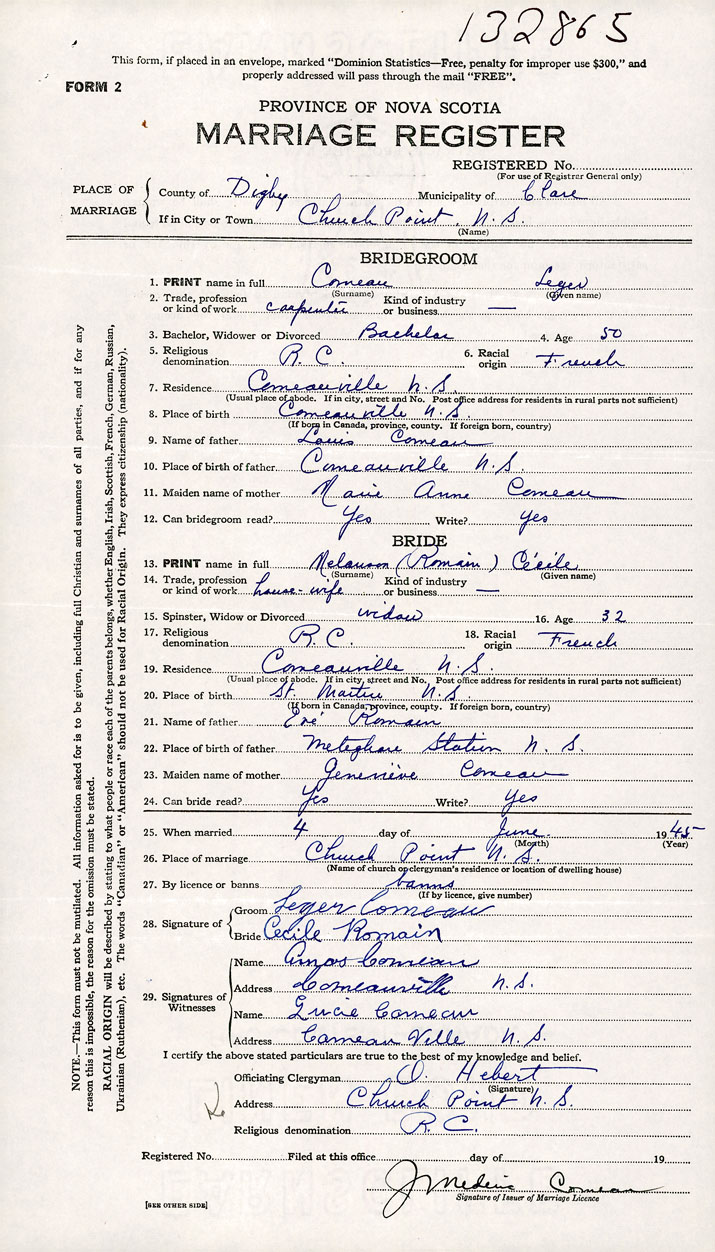 132865
This form, if placed in an envelope, marked "Dominion Statistics—Free, penalty for improper use $300," and
properly addressed will pass through the mail "FREE".
FORM 2
PROVINCE OF NOVA SCOTIA
MARRIAGE REGISTER
REGISTERED No.
(For use of Registrar General only)
PLACE OF MARRIAGE
County of Digby Municipality of Clare
If in City or Town Church Point, N.S.
(Name)
BRIDEGROOM
1. PRINT name in full Comeau Leger
(Surname) (Given name)
2. Trade, profession or kind of work carpenter Kind of industry or business —
3. Bachelor, Widower or Divorced Bachelor 4. Age 50
5. Religious denomination R.C. 6. Racial origin French
7. Residence Comeauville N.S.
(Usual place of abode. If in city, street and No. Post office address for residents in rural parts not sufficient)
8. Place of birth Comeauville N.S.
(If born in Canada, province, county. If foreign born, country)
9. Name of father Louis Comeau
10. Place of birth of father Comeauville N.S.
11. Maiden name of mother Marie Anne Comeau
12. Can bridegroom read? Yes Write? Yes
BRIDE
13. PRINT name in full Melanson (Romain) Cécile
(Surname) (Given name)
14. Trade, profession or kind of work house-wife Kind of industry or business —
15. Spinster, Widow or Divorced widow 16. Age 32
17. Religious denomination R.C. 18. Racial origin French
19. Residence Comeauville N.S.
(Usual place of abode. If in city, street and No. Post office address for residents in rural parts not sufficient)
20. Place of birth St. Martin N.S.
(If born in Canada, province, county. If foreign born, country)
21. Name of father Romain
22. Place of birth of father Meteghan Station N.S.
23. Maiden name of mother Geneviève Comeau
24. Can bride read? Yes Write? Yes
25. When married 4 day of June 1945
(Month) (Year)
26. Place of marriage Church Point N.S.
(Name of church or clergyman's residence or location of dwelling house)
27. By licence or banns banns
(If by licence, give number)
28. Signature of
Groom Leger Comeau
Bride Cecile Romain
29. Signatures of Witnesses
Name Amos Comeau
Address Comeauville N.S.
Name Lucie Comeau
Address Comeau Ville N.S.
I certify the above stated particulars are true to the best of my knowledge and belief.
Officiating Clergyman O. Hebert
(Signature)
Address Church Point N.S.
Religious denomination R.C.
Registered No. Filed at this office day of 19
J Medric Comeau
Signature of Issuer of Marriage Licence
[SEE OTHER SIDE]
NOTE.—This form must not be mutilated. All information asked for is to be given, including full Christian and surnames of all parties, and if for any
reason this is impossible, the reason for the omission must be stated.
RACIAL ORIGIN will be described by stating to what people or race each of the parents belongs, whether English, Irish, Scottish, French, German, Russian,
Ukrainian (Ruthenian), etc. The words "Canadian" or "American" should not be used for Racial Origin. They express citizenship (nationality).